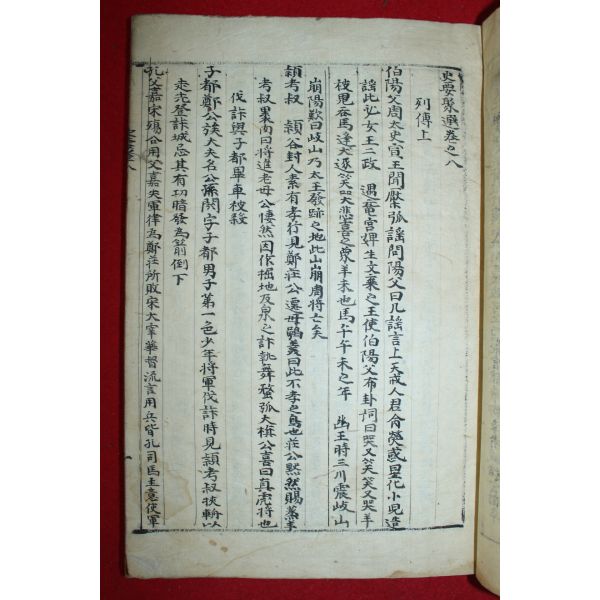 史要聚選卷之八
列傳上
伯陽父周太史宣王聞檿弧謠問陽父曰凡謠言上天戒人君命熒惑星化小兒造
謠此弘女王之政 遇竜宮婢生文棄之王使伯陽父布卦詞曰哭又笑笑又哭羊
被鬼吞馬逢犬逐笑哭大悲喜之象羊未也馬午午未之年 幽王時三川震岐山
崩陽歎曰岐山乃太王發跡之地此山崩周將亡矣
頴考叔 頴谷封人素有孝行見鄭莊公遷母鶚羹曰此不孝之鳥也莊公黙然賜蒸羊
考叔裹肉曰將進老母公悽然因作掘地及泉之計執舞蝥弧大旆公喜曰真虎將也
伐許與子都爭車被殺
子都鄭公族大夫名公孫閼字子都男子第一色少年將軍伐許時見頴考叔挾輈以
走先登許城忌其有功暗發為箭倒下
孔父嘉宋殤公用父嘉夾軍律為鄭莊所敗宋大宰華督流言用兵皆孔司馬主意使軍